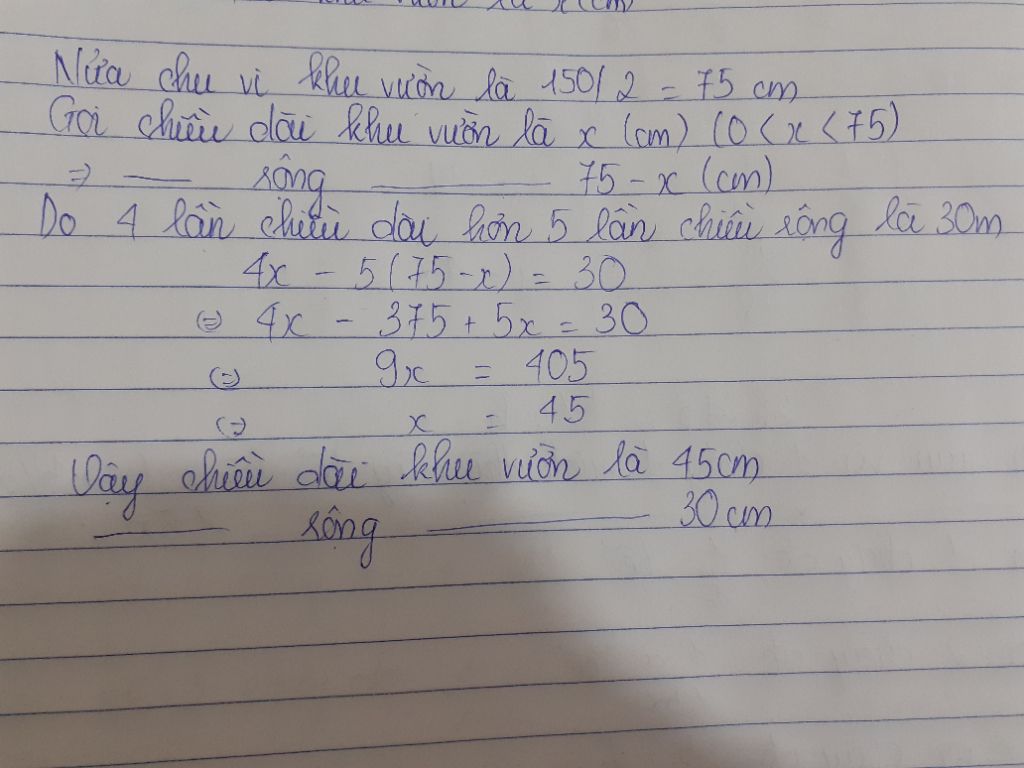 Nửa chu vi khu vườn là 150/2 = 75 cm
Gọi chiều dài khu vườn là x (cm) (0 < x < 75)
=> — rộng — 75 - x (cm)
Do 4 lần chiều dài hơn 5 lần chiều rộng là 30m
4x - 5(75 - x) = 30
(=) 4x - 375 + 5x = 30
(=) 9x = 405
(=) x = 45
Vậy chiều dài khu vườn là 45cm
— rộng — 30cm